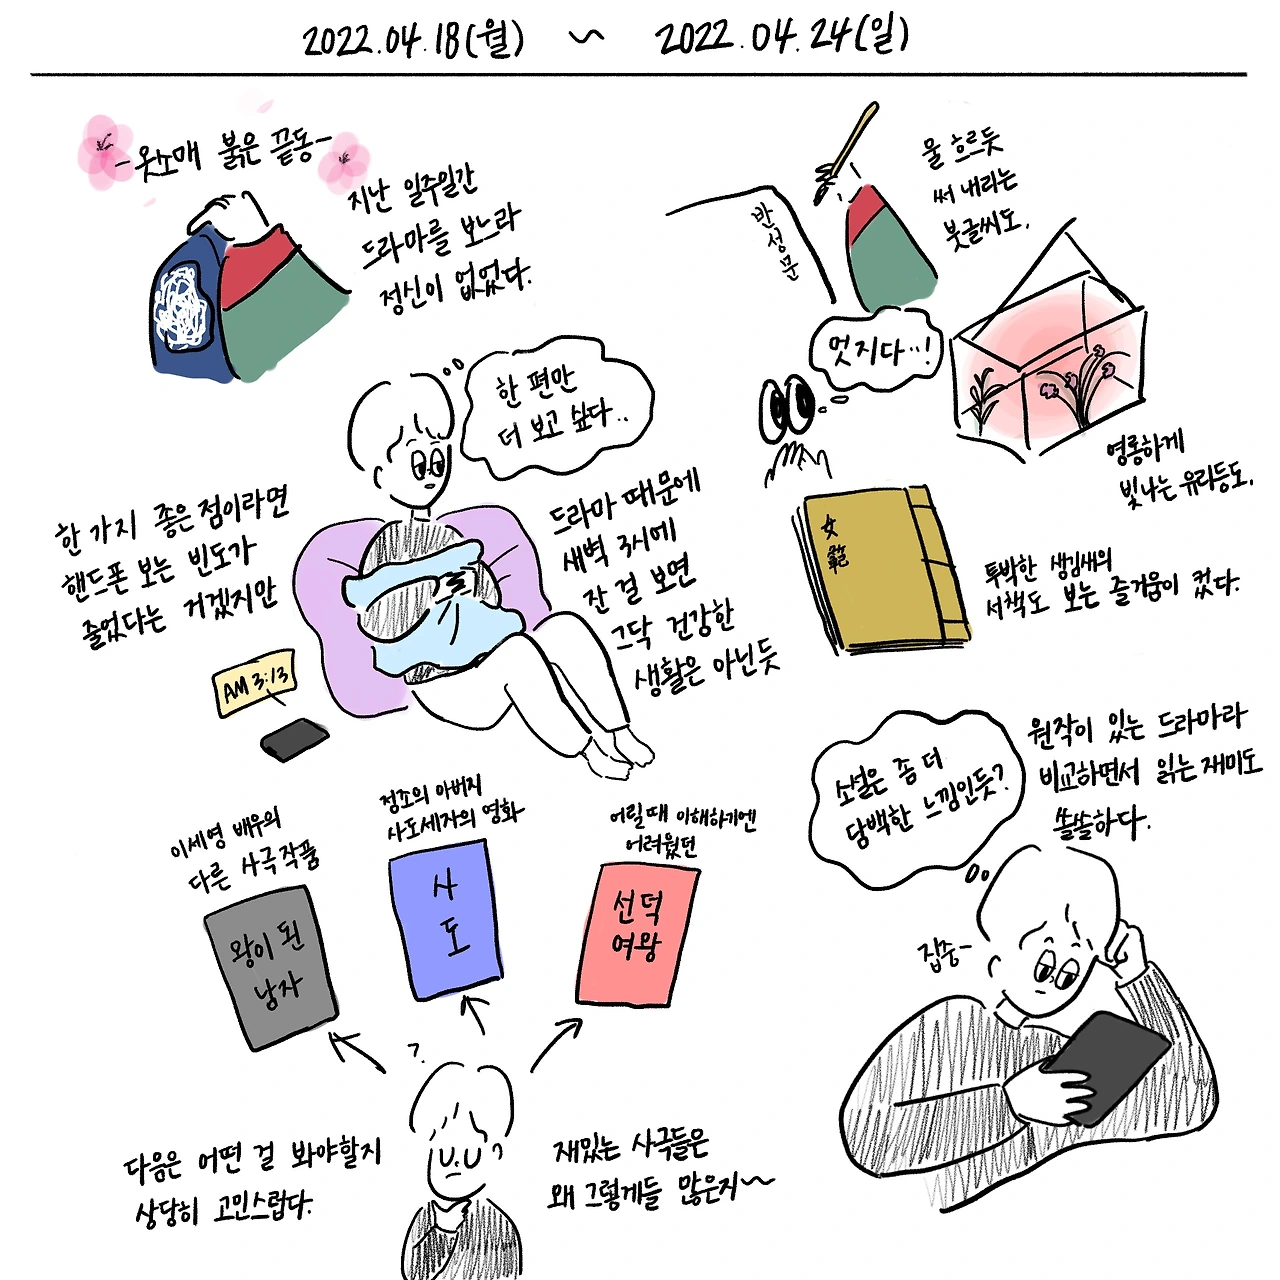 2022.04.18(월) ~ 2022.04.24(일)
-옷소매 붉은 끝동-
지난 일주일간
드라마를 보느라
정신이 없었다.
반성문
물 흐르듯
써 내리는
붓글씨도,
멋지다…!
영롱하게
빛나는 유리등도,
女範
투박한 생김새의
서책도 보는 즐거움이 컸다.
한 편만
더 보고 싶다..
한 가지 좋은 점이라면
핸드폰 보는 빈도가
줄었다는 거겠지만
AM 3:13
드라마 때문에
새벽 3시에
잔 걸 보면
그닥 건강한
생활은 아닌듯
원작이 있는 드라마라
비교하면서 읽는 재미도
쏠쏠하다.
소설은 좀 더
담백한 느낌인듯?
집중-
이세영 배우의
다른 사극작품
왕이 된
남자
정조의 아버지
사도세자의 영화
사
도
어릴때 이해하기엔
어려웠던
선덕
여왕
?
다음은 어떤 걸 봐야할지
상당히 고민스럽다.
재밌는 사극들은
왜 그렇게들 많은지~~